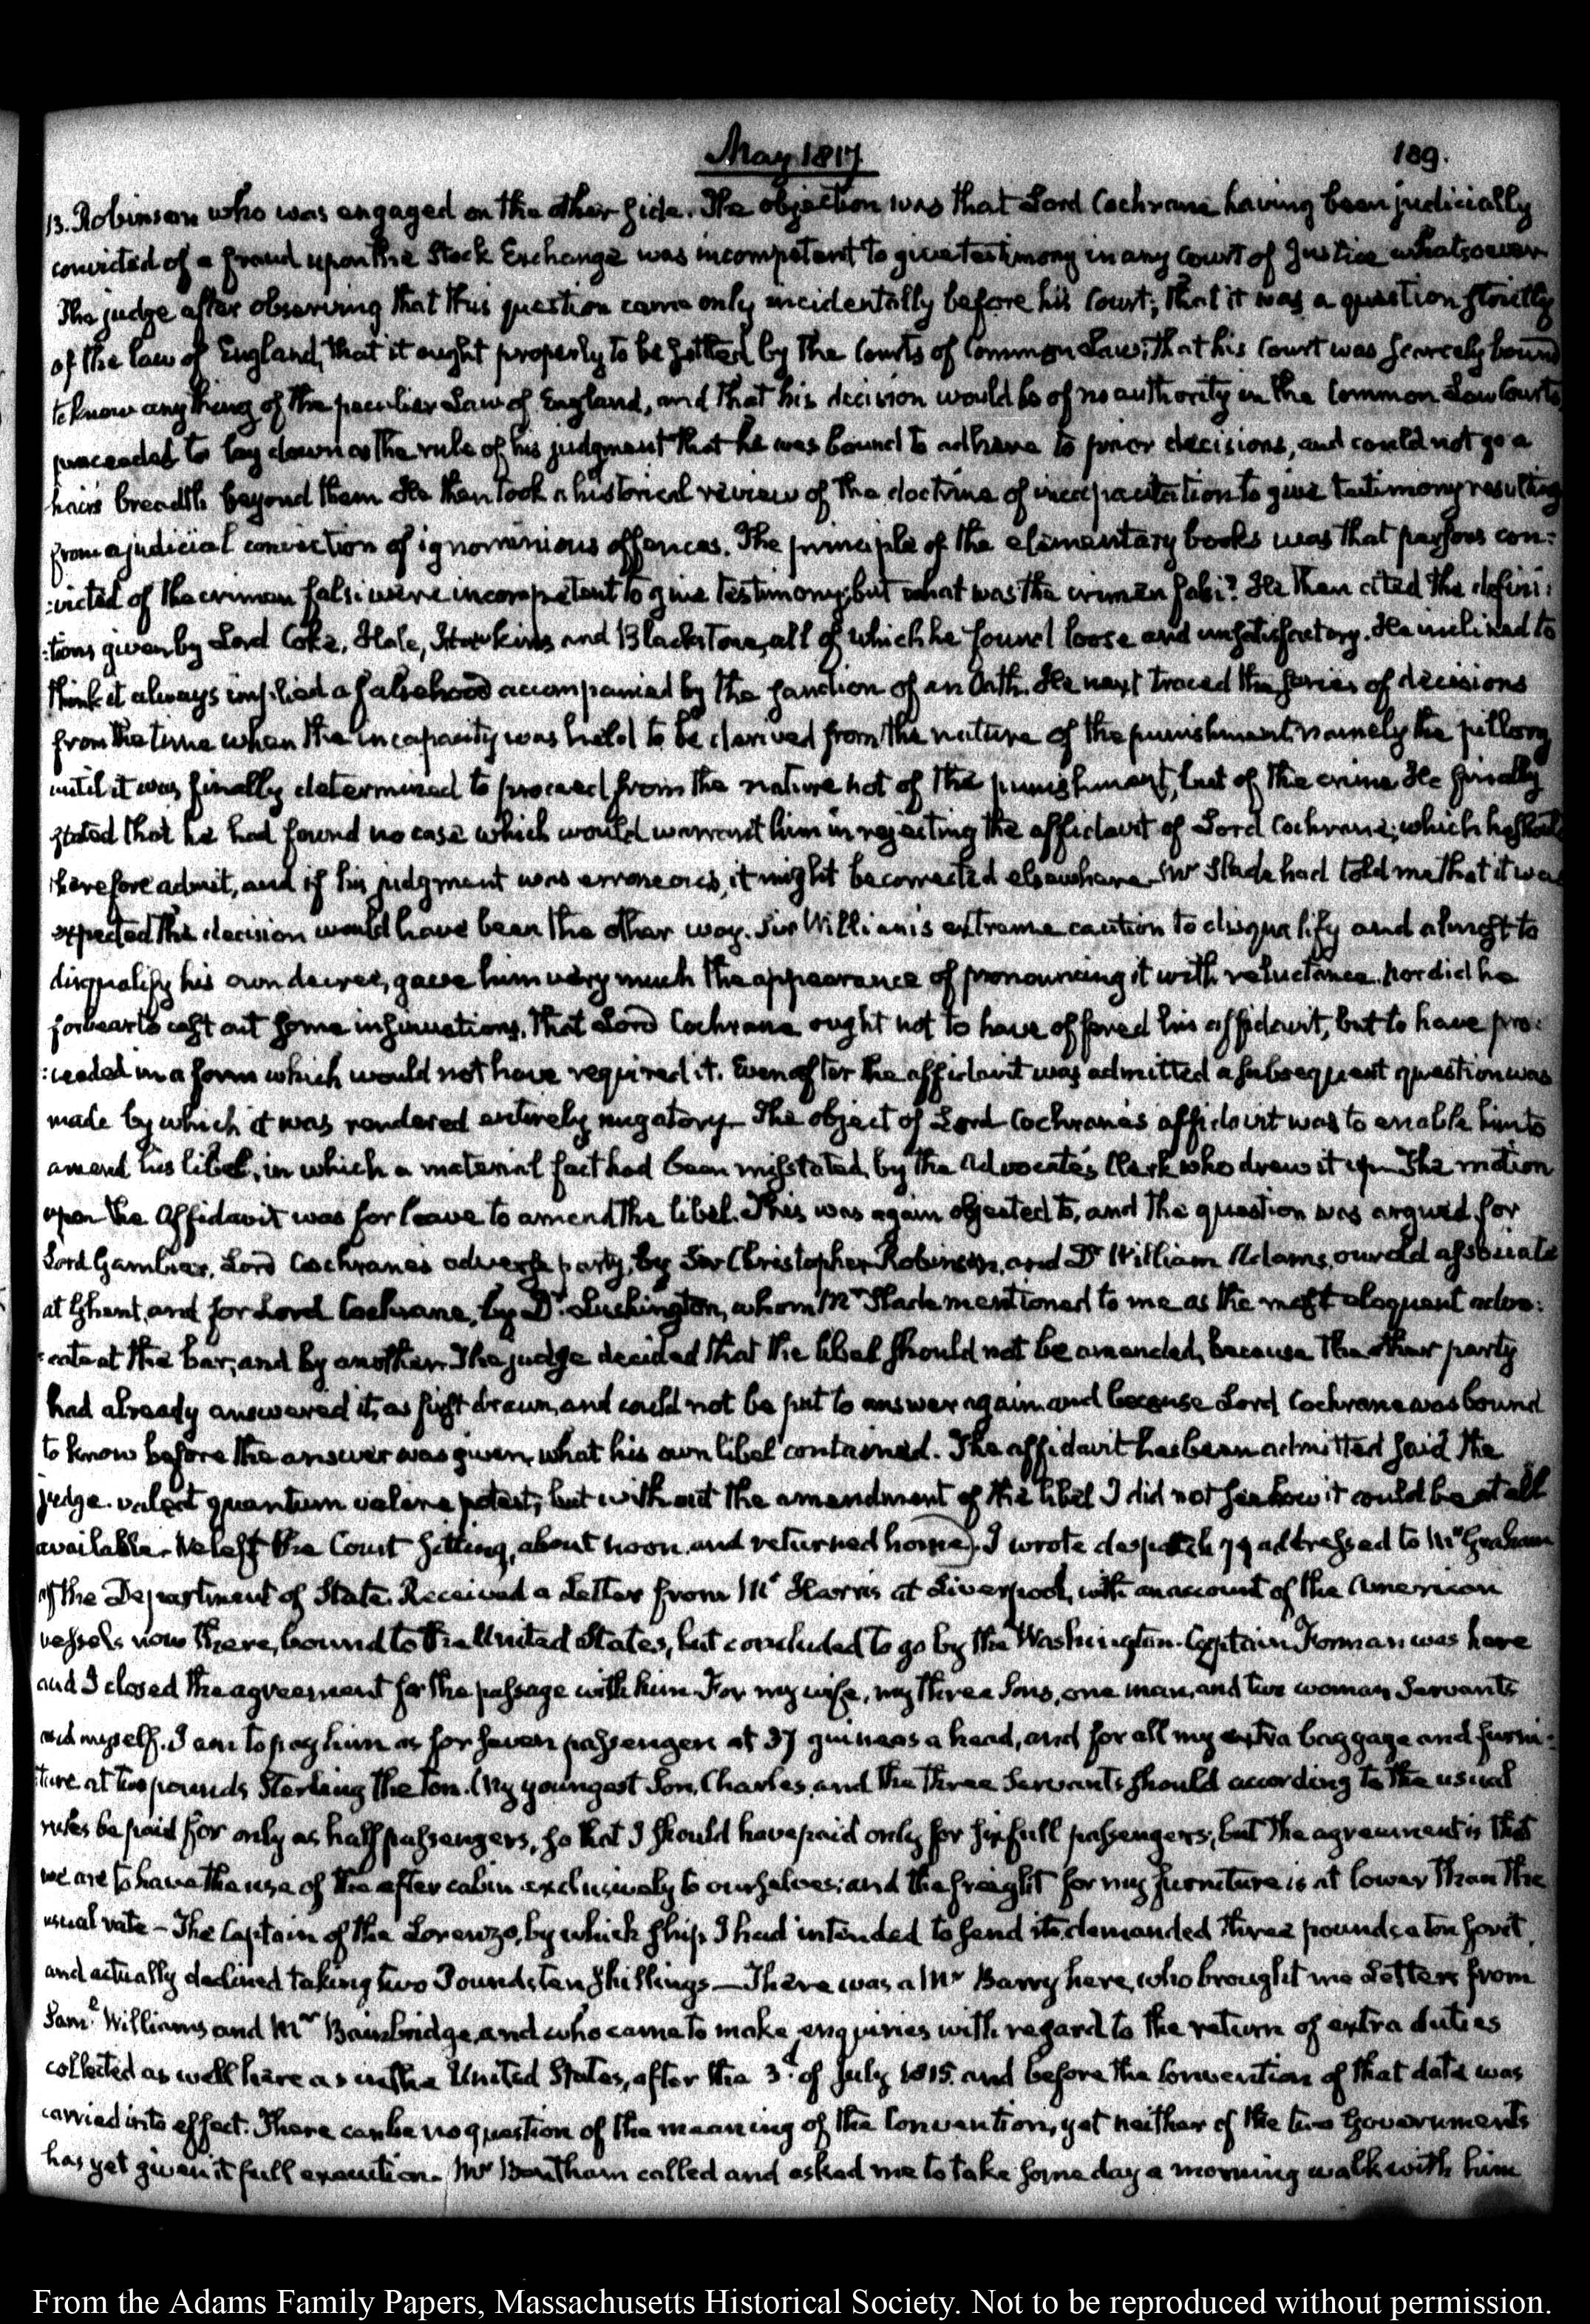 May 1817
189.
13. Robinson who was engaged on the other side. The objection was that Lord Cochrane having been judicially
convicted of a fraud upon the Stock Exchange was incompetent to give testimony in any Court of Justice whatsoever
The judge after observing that this question came only incidentally before his Court; that it was a question strictly
of the law of England, that it ought properly to be settled by the Courts of Common Law; that his Court was scarcely bound
to know any thing of the peculiar Law of England, and that his decision would be of no authority in the Common Law Courts,
proceeded to lay down as the rule of his judgment that he was bound to adhere to prior decisions, and could not go a
hair's breadth beyond them. He then took a historical review of the doctrine of incapacitation to give testimony resulting
from a judicial conviction of ignominious offences. The principle of the elementary books was that persons con:
:victed of the crimen falsi were incompetent to give testimony; but what was the crimen falsi? He then cited the defini:
:tions given by Lord Coke, Hale, Hawkins and Blackstone, all of which he found loose and unsatisfactory. He inclined to
think it always implied a falsehood accompanied by the sanction of an Oath. He next traced the series of decisions
from the time when the incapacity was held to be derived from the nature of the punishment namely the pillory
until it was finally determined to proceed from the nature not of the punishment, but of the crime. He finally
stated that he had found no case which would warrant him in rejecting the affidavit of Lord Cochrane; which he should
therefore admit, and if his judgment was erroneous, it might be corrected elsewhere. Mr Slade had told me that it was
expected the decision would have been the other way. Sir William's extreme caution to disqualify and almost to
disqualify his own decree, gave him very much the appearance of pronouncing it with reluctance. Nor did he
forbear to cast out some insinuations, that Lord Cochrane ought not to have offered his affidavit, but to have pro:
:ceeded in a form which would not have required it. Even after the affidavit was admitted a subsequent question was
made by which it was rendered entirely nugatory. The object of Lord Cochrane's affidavit was to enable him to
amend his libel, in which a material fact had been misstated by the Advocate's Clerk who drew it up. The motion
upon the Affidavit was for leave to amend the libel. This was again objected to, and the question was argued for
Lord Gambier, Lord Cochrane's adverse party, by Sir Christopher Robinson, and Dr William Adams, our old associate
at Ghent, and for Lord Cochrane, by Dr Lushington, whom Mr Slade mentioned to me as the most eloquent advo:
:cate at the bar, and by another. The judge decided that the libel should not be amended, because the other party
had already answered it, as first drawn, and could not be put to answer again and because Lord Cochrane was bound
to know before the answer was given, what his own libel contained. The affidavit has been admitted said the
judge. valeat quantum valere potest; but without the amendment of the libel I did not see how it could be at all
available. We left the Court sitting, about noon and returned home. I wrote despatch 79 addressed to Mr Graham
of the Department of State. Received a Letter from Mr Harris at Liverpool, with an account of the American
vessels now there, bound to the United States, but concluded to go by the Washington. Captain Forman was here
and I closed the agreement for the passage with him. For my wife, my three Sons, one man, and two woman Servants
and myself. I am to pay him as for seven passengers at 37 guineas a head, and for all my extra baggage and furni:
:ture at two pounds Sterling the ton. My youngest Son, Charles, and the three Servants should according to the usual
rules be paid for only as half passengers, so that I should have paid only for six full passengers; but the agreement is that
we are to have the use of the after cabin exclusively to ourselves; and the freight for my furniture is at lower than the
usual rate — The Captain of the Lorenzo, by which ship I had intended to send it, demanded three pounds a ton for it,
and actually declined taking two Pounds ten shillings — There was a Mr Barry here, who brought me Letters from
Saml Williams and Mr Bainbridge, and who came to make enquiries with regard to the return of extra duties
collected as well here as in the United States, after the 3d of July 1815 and before the Convention of that date was
carried into effect. There can be no question of the meaning of the Convention, yet neither of the two Governments
has yet given it full execution. Mr Bentham called and asked me to take some day a morning walk with him
From the Adams Family Papers, Massachusetts Historical Society. Not to be reproduced without permission.